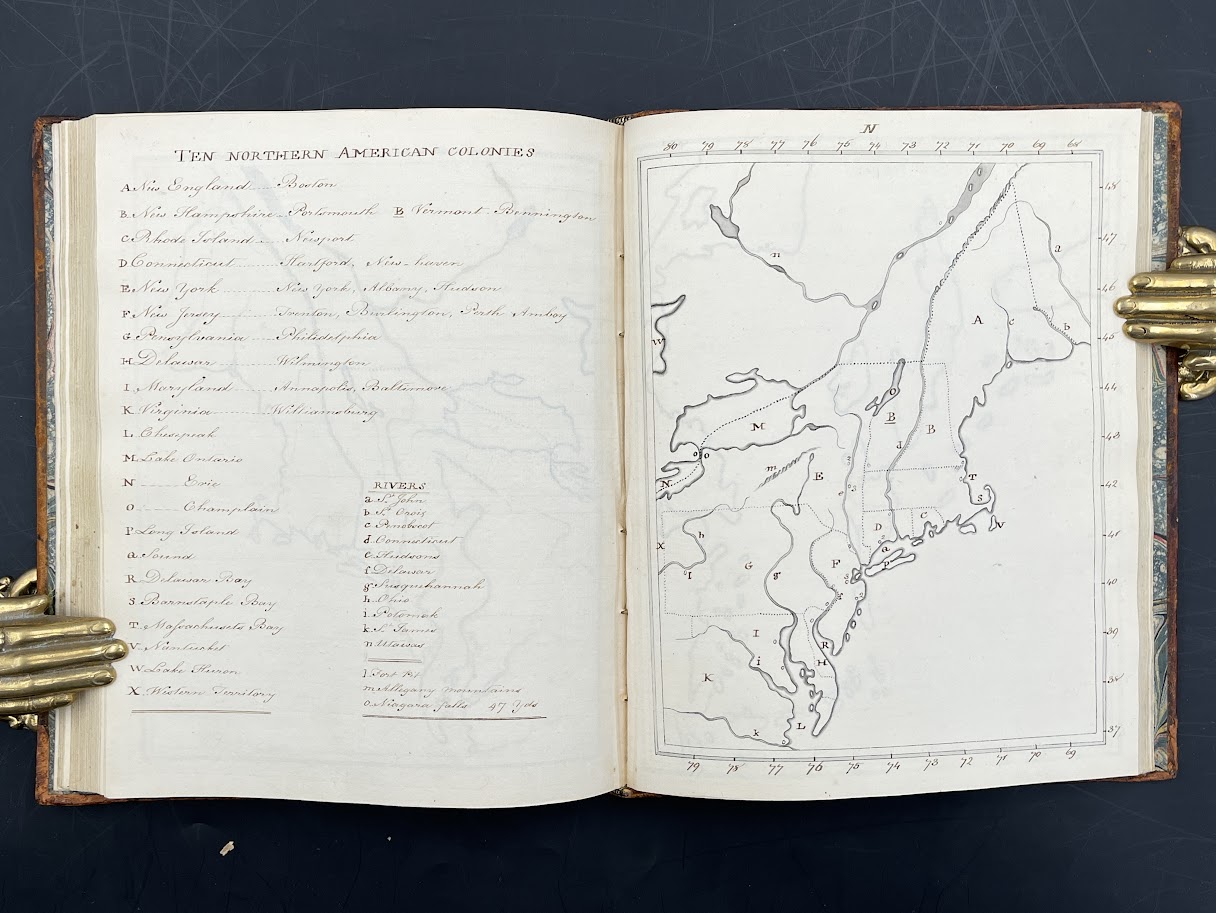 TEN NORTHERN AMERICAN COLONIES
A New England Boston
B New Hampshire Portsmouth B Vermont Bennington
C Rhode Island Newport
D Connecticut Hartford, New-haven
E New York New York, Albany, Hudson
F New Jersey Trenton, Burlington, Perth Amboy
G Pensylvania Philidelphia
H Delawar Wilmington
I Maryland Annapolis, Baltimore
K Virginia Williamsburg
L Chesepeak
M Lake Ontario
N Erie
O Champlain
P Long Island
a Sound
R Delawar Bay
S Barnstaple Bay
T Massachusets Bay
V Nantucket
W Lake Huron
X Western Territory
RIVERS
a St. John
b St. Crois
c Penobscot
d Connecticut
e Hudsons
f Delawar
g Susquehannah
h Ohio
i Potomak
k St. James
n Utawas
l Fort Pit
m Allegany mountains
o Niagara falls 47 Yds
N
80 79 78 77 76 75 74 73 72 71 70 69 68
48
47
46
45
44
43
42
41
40
39
38
37
n
a
A
c
b
W
O
M
B
B
d
o
N
m
E
T
S
V
D
C
X
h
a
P
l
G
g
F
I
i
R
H
K
L
k
79 78 77 76 75 74 73 72 71 70 69